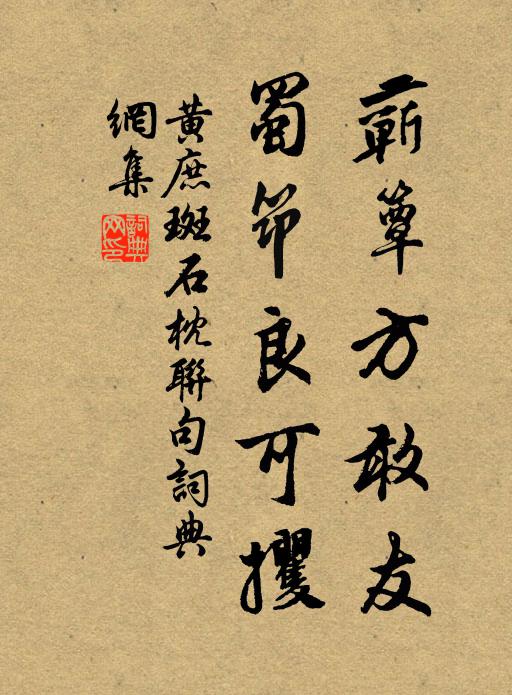 蘄簟方敢友
蜀筇良可攫
黃庶斑石枕聯句詞典
網集
詞典網印